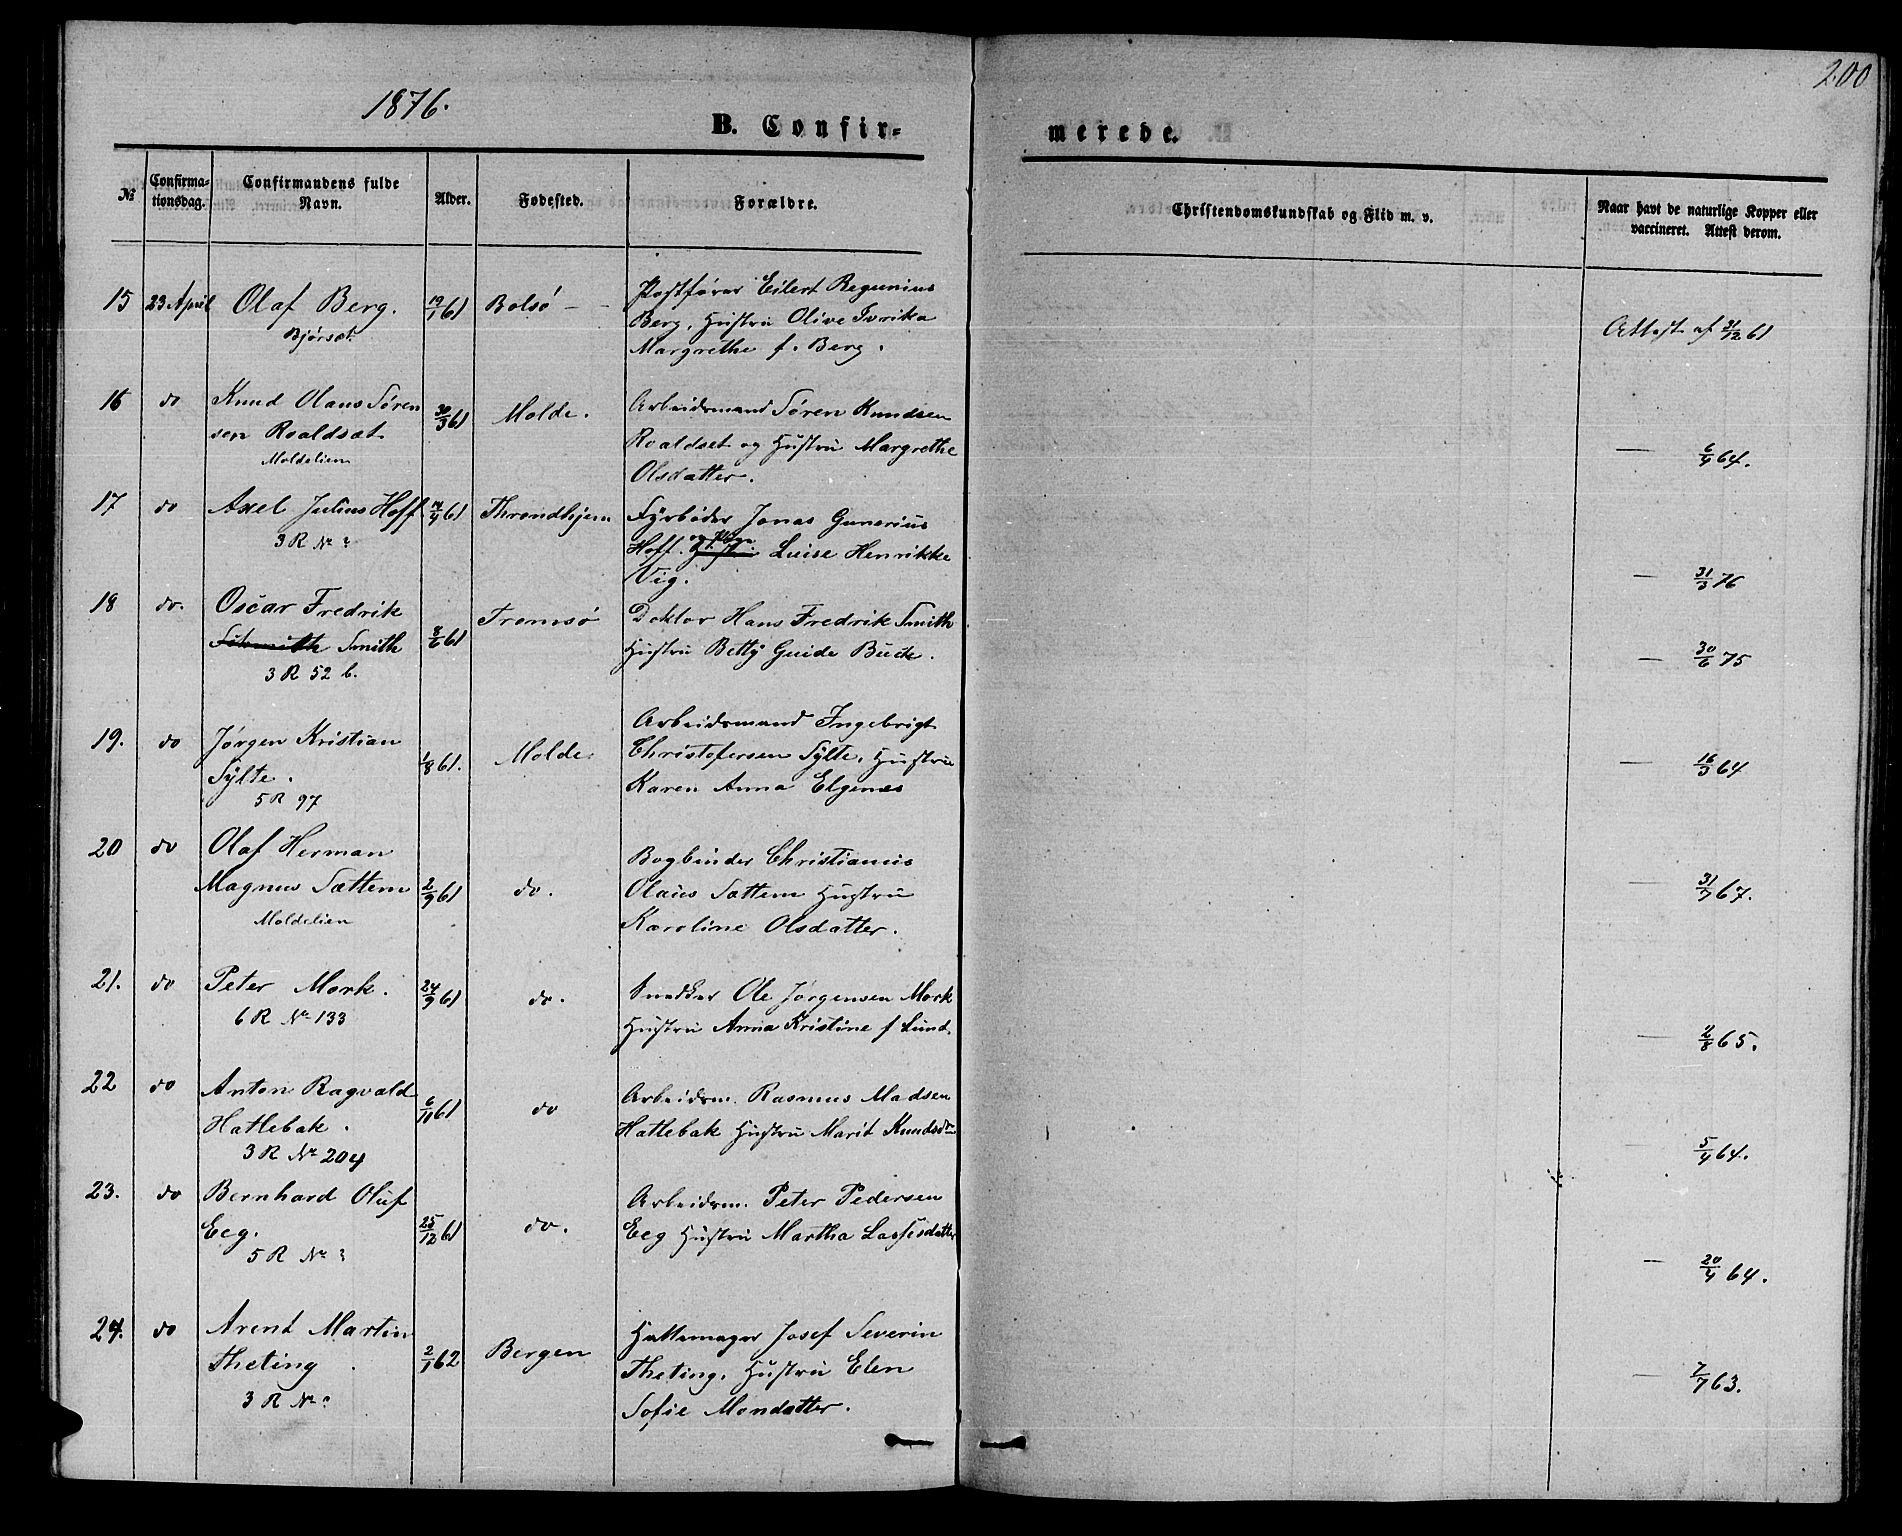 1876.
200
B. Confir-
merede.
№
Confirma-
tionsdag.
Confirmandens fulde
Navn.
Alder.
Fødested.
Forældre.
Christendomskundskab og Flid m. v.
Naar havt de naturlige Kopper eller
vaccineret. Attest derom.
15 23 April Olaf Berg. 19/1 61 Bolsø –
Bjørset
Postfører Eilert Regunius
Berg, Hustru Olive Ivrika
Margrethe f. Berg.
Attest af 31/12 61
16 do Knud Olaus Søren
sen Roaldset 30/3 61 Molde.
Moldelien
Arbeidsmand Søren Knudsen
Roaldset og Hustru Margrethe
Olsdatter.
— 6/4 64.
17 do Axel Julius Hoff. 14/4 61 Throndhjem
3 R №?
Fyrbøder Jonas Gunerius
Hoff. Luise Henrikke
Vig.
— 31/3 76
18 do. Oscar Fredrik
Schmith Smith 8/6 61 Tromsø
3 R 52 b.
Doktor Hans Fredrik Smith
Hustru Betty Guide Buck.
— 30/6 75
19. do Jørgen Kristian
Sylte. 1/8 61. Molde.
5 R 97
Arbeidsmand Ingebrigt
Christofersen Sylte, Hustru
Karen Anna Elgenes
— 16/3 64
20 do Olaf Herman
Magnus Sættem 2/9 61 do.
Moldelien
Bogbinder Christianus
Olaus Sættem Hustru
Karoline Olsdatter.
— 31/7 67.
21. do Peter Mork. 24/9 61 do.
6 R № 133
Snedker Ole Jørgensen Mork
Hustru Anna Kristine f Lund.
— 2/8 65.
22 do Anton Ragvald
Hatlebak. 6/11 61 do
3 R № 204
Arbeidsm. Rasmus Madsen
Hatlebak Hustru Marit Knudsdr
— 5/4 64.
23. do Bernhard Oluf
Eeg. 25/12 61 do.
5 R №?
Arbeidsm. Peter Pedersen
Eeg Hustru Martha Lassesdatter
— 20/4 64.
24. do Arent Martin
Theting. 2/1 62 Bergen
3 R №?
Hattemager Josef Severin
Theting, Hustru Elen
Sofie Mondatter.
— 7/7 63.